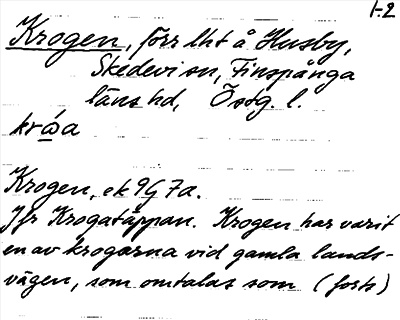 1-2
Krogen, förr lht å Husby,
Skedevi sn, Finspånga
läns hd, Östg. l.
Krogen, ek 9G 7a.
Jfr Krogatäppan. Krogen har varit
en av krogarna vid gamla lands-
vägen, som omtalas som (forts)